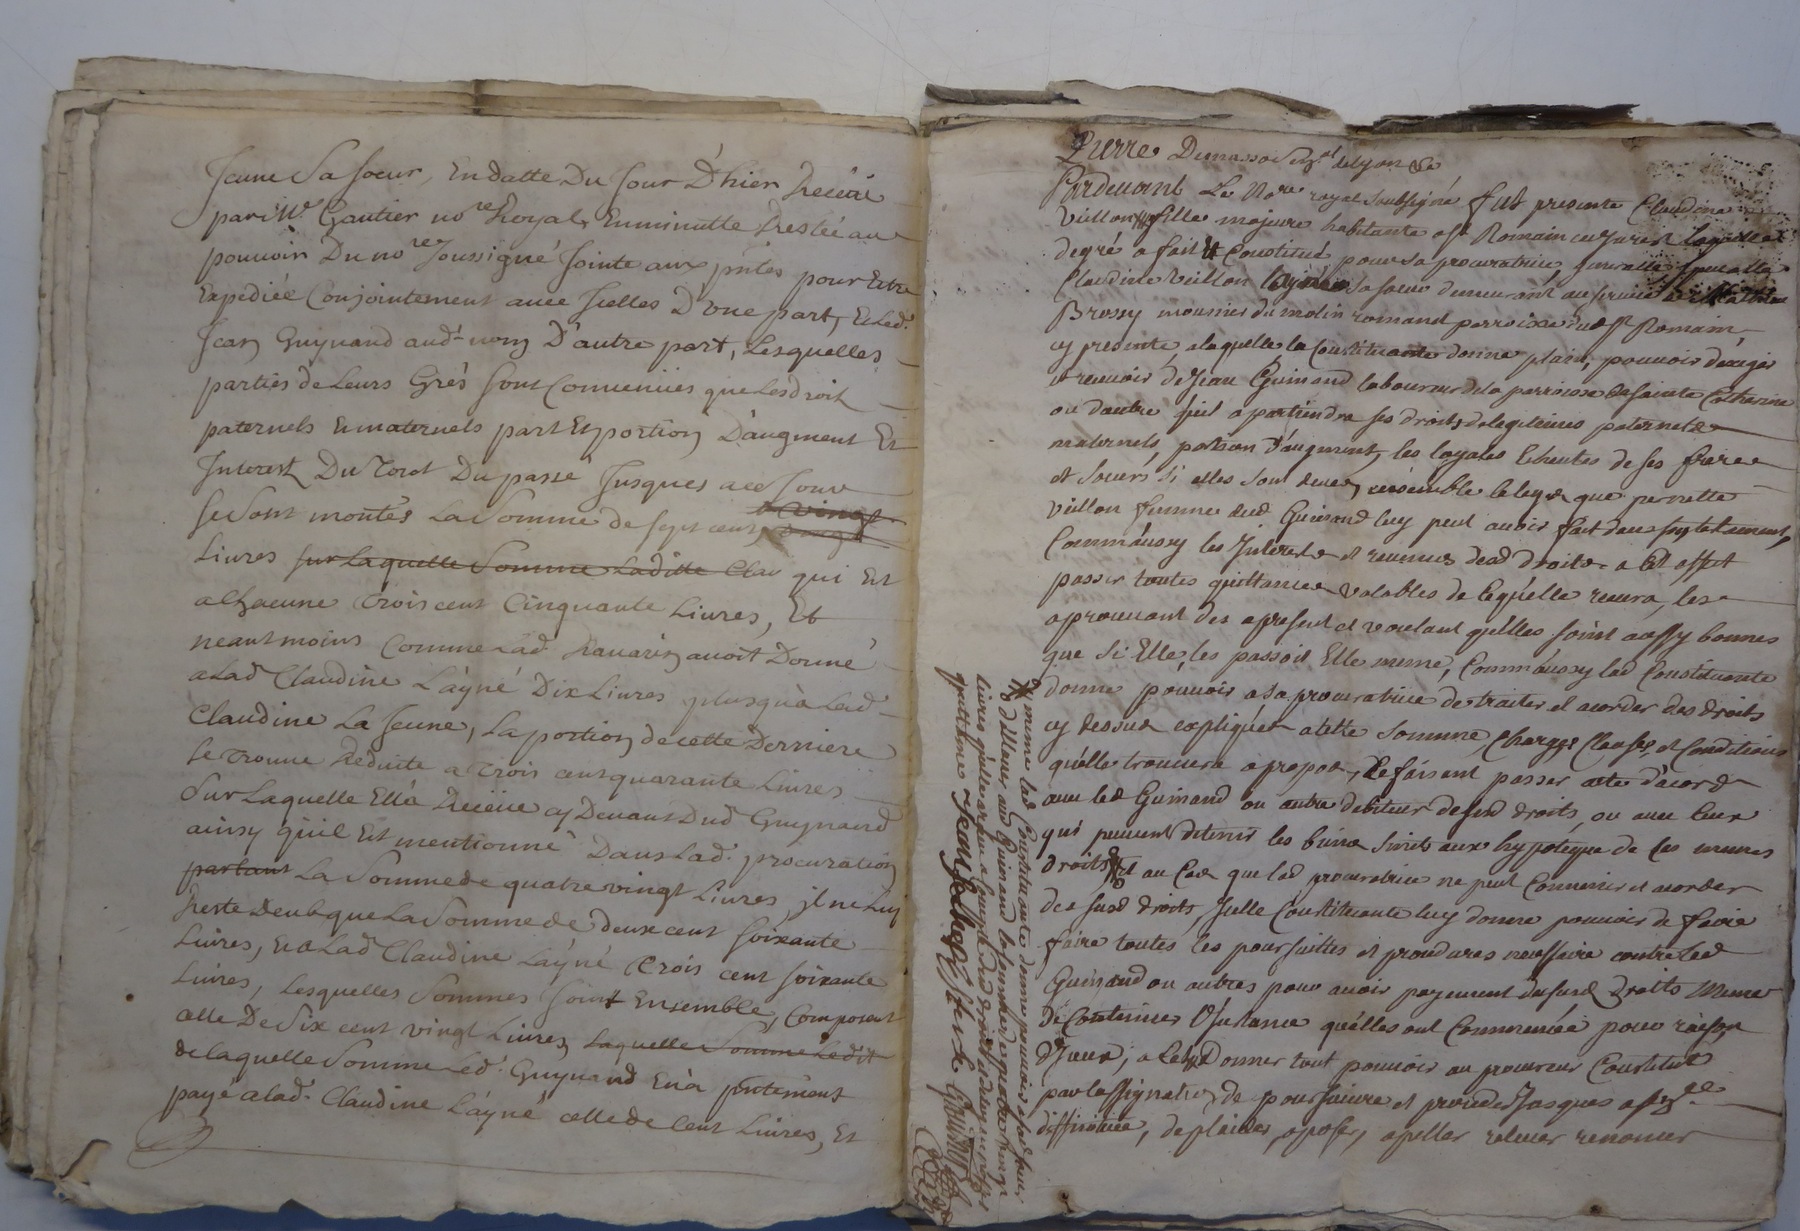 Jeune Sa soeur, En datte Du Jour D'hier Receüe
par Me Gautier nore Royal, En minutte Restée au
pouvoir Du nore soussigné Jointe aux pntes pour Estre
Expediée Conjointement avec Jcelles D'une part, Et led.
Jean Guynand aud. nom D'autre part, Lesquelles
parties de Leurs Grés sont Convenües que Les droit
paternels Et maternels part Et portion D'augment Et
Interest Du tout Du passé Jusques a ce Jour
se sont montés La Somme de sept cents
Livres sur Laquelle Somme Laditte Clau qui Est
a Chacune trois cent Cinquante Livres, Et
neantmoins Comme Lad. avoit Donné
a Lad Claudine L'ayné Dix Livres plus qu'a Lad
Claudine La Jeune, La portion de cette Derniere
se trouve Reduitte a trois cent quarante Livres
Sur Laquelle Ell'a Receüe cy Devant Dud Guynand
ainsy qu'il Est mentionné Dans Lad. procuration
partant La Somme de quatre vingt Livres, jl ne Luy
Reste deub que La Somme de deux cent soixante
Livres, Et a Lad Claudine L'ayné trois cent soixante
Livres, Lesquelles Sommes Joint Ensemble, Composent
celle De Six cent vingt Livres, Laquelle Somme Ledit
de laquelle Somme Led. Guynand En'a pntement
payé a lad. Claudine L'ayné celle de Cent Livres, Et
Pierre Lyon
Pardevant Le Nore royal soubsigné fut presente Claudine
Veillon fille majeure habitante a St Romain en Jarest laquelle de
degré a fait et Constitué pour sa procuratrice, generalle, specialle
Claudine Veillon l'aynée sa soeur demeurant au service de Mathieu
Brossy mounier du molin romand parroisse dud St Romain
cy presente a laquelle la Constituante donne plain, pouvoir d'exiger
et recevoir de Jean Guinand laboureur de la parroisse de sainte Catherine
ou d'autre qu'il apartiendra ses droits de legitimes paternels
maternels, portion d'augment, les loyales Echeutes de ses freres
et soeurs si elles sont deues, ensemble le legs que pernette
veillon femme dud Guinand luy peut avoir fait dans son testament,
Comm'aussy les Interets et revenus desd droits a Cet effet
passer toutes quittances valables de ce qu'elle recevra, les
aprouvant des apresent et voulant qu'elles soint aussy bonnes
que si Elle, les passoit Elle meme, Comm'aussy lad Constituante
donne pouvoir a sa procuratrice de traiter et acorder des droits
cy dessus expliqués a telle somme, Charges Clauses, et Conditions
qu'elle trouvera a propos, Ce faisant passer acte d'acord
avec led Guinand ou autre debiteur desusd droits, ou avec Ceux
qui peuvent detenir les biens sinits aux hypoteque de Ces mesmes
droits Et au Cas que lad procuratrice ne peut Convenir et acorder
des susd droits, Jcelle Constituante luy donne pouvoir de faire
faire toutes les poursuittes et procedures necessaire contre led
Guinand ou autres pour avoir payement desusd droits Meme
de Continuer l'Jnstance qu'elles ont Commencée pour raison
d'Jceux, a Cet Donner tout pouvoir au procureur Constitué
par de poursuivre et proceder Jusques a
diffinitive, deplaider, oposer, apeller relever renoncer
meme lad Constituante donne pouvoir a sad soeur